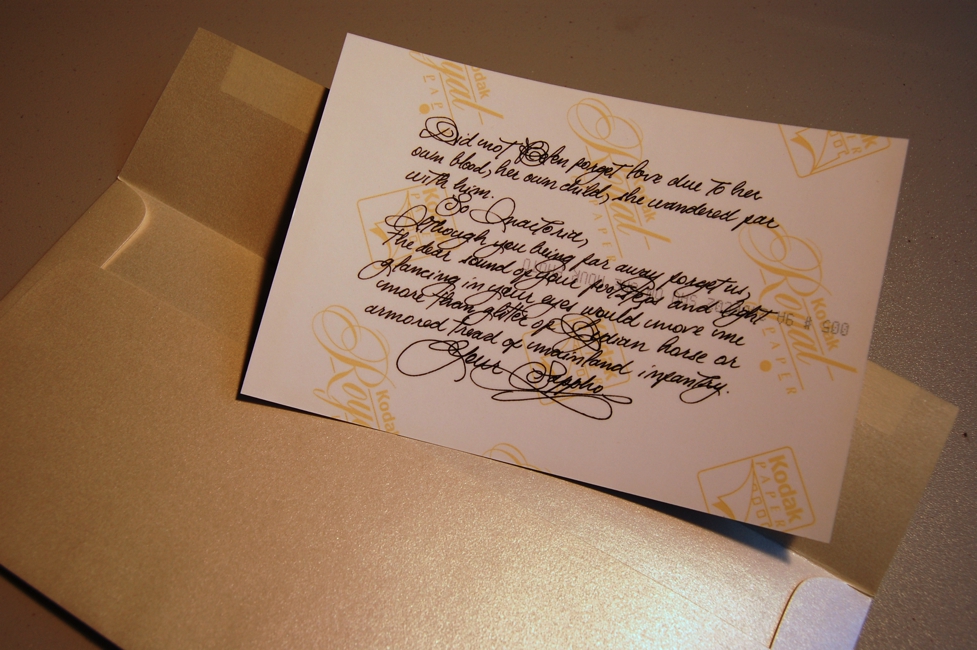 Did not Helen forget love due to her
own blood, her own child, she wandered far
with him.
So Anaitoria,
Although you being far away forget us,
The dear sound of your footsteps and light
glancing in your eyes would move me
more than glitter of Lydian horse or
armored tread of mainland infantry.
Your Sappho
Kodak
Royal
PAPER
Royal
Kodak
PAPER
Kodak
Royal
Kodak
PAPER
Royal
Kodak
Kodak
PAPER